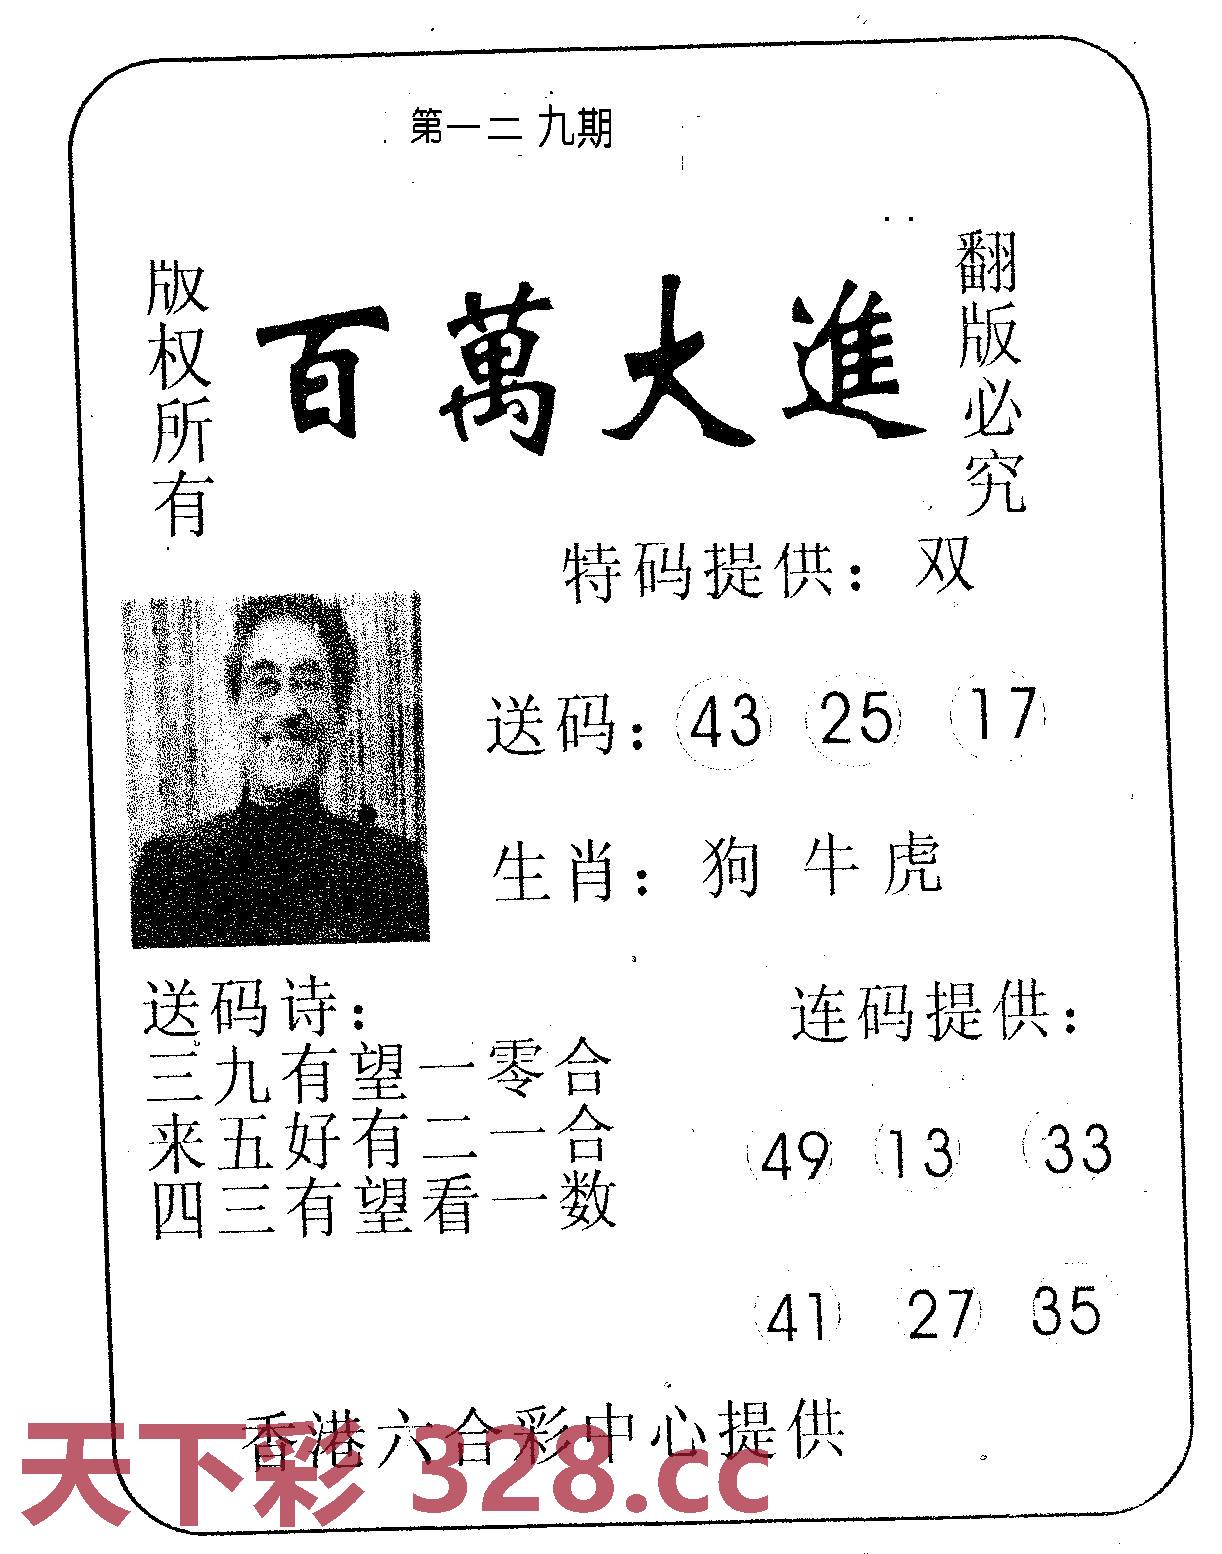 第一二九期
版权所有
百萬大進
翻版必究
特码提供：双
送码：43 25 17
生肖：狗 牛 虎
送码诗：
三九有望一零合
来五好有二一合
四三有望看一数
连码提供：
49 13 33
41 27 35
香港六合彩中心提供
天下彩 328.cc